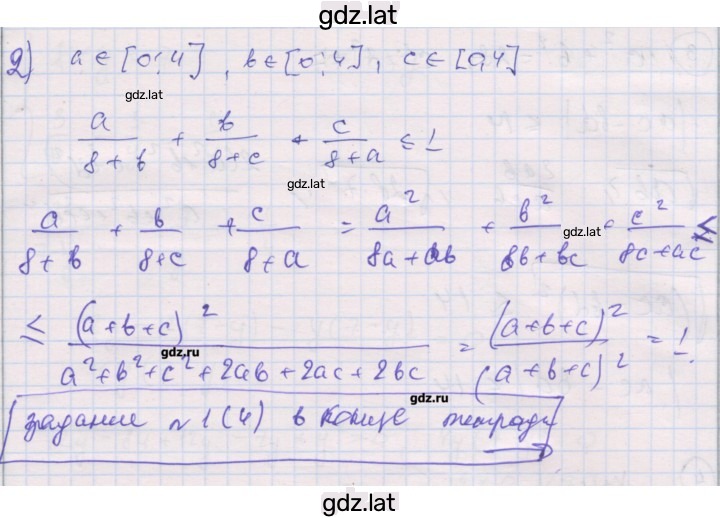 gdz.lat
2) a ∈ [0; 4], b ∈ [0; 4], c ∈ [0; 4]
gdz.lat
a/(8+b) + b/(8+c) + c/(8+a) ≤ 1
gdz.lat
a/(8+b) + b/(8+c) + c/(8+a) = a²/(8a+ab) + b²/(8b+bc) + c²/(8c+ac) ≤
gdz.lat
≤ (a+b+c)²/(a²+b²+c²+2ab+2ac+2bc) = (a+b+c)²/(a+b+c)² = 1.
gdz.ru
задание №1(4) в конце тетради
gdz.lat